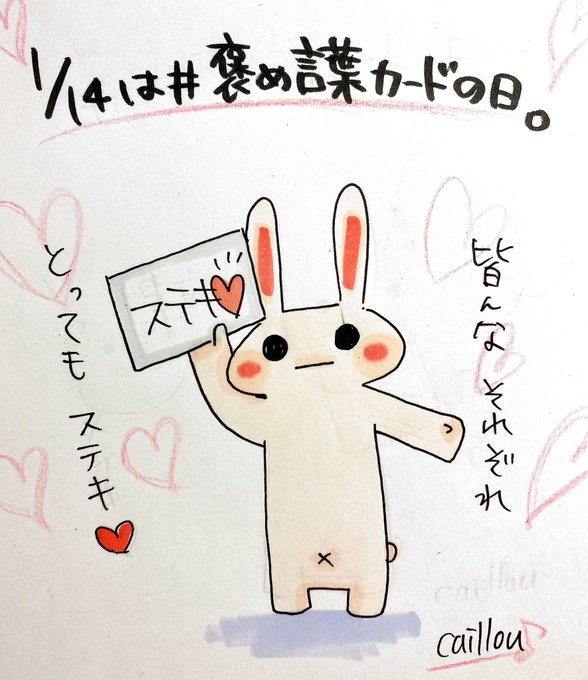 1/14は#褒め言葉カードの日。
ステキ♥
皆んな それぞれ
とっても ステキ♥
caillou♪